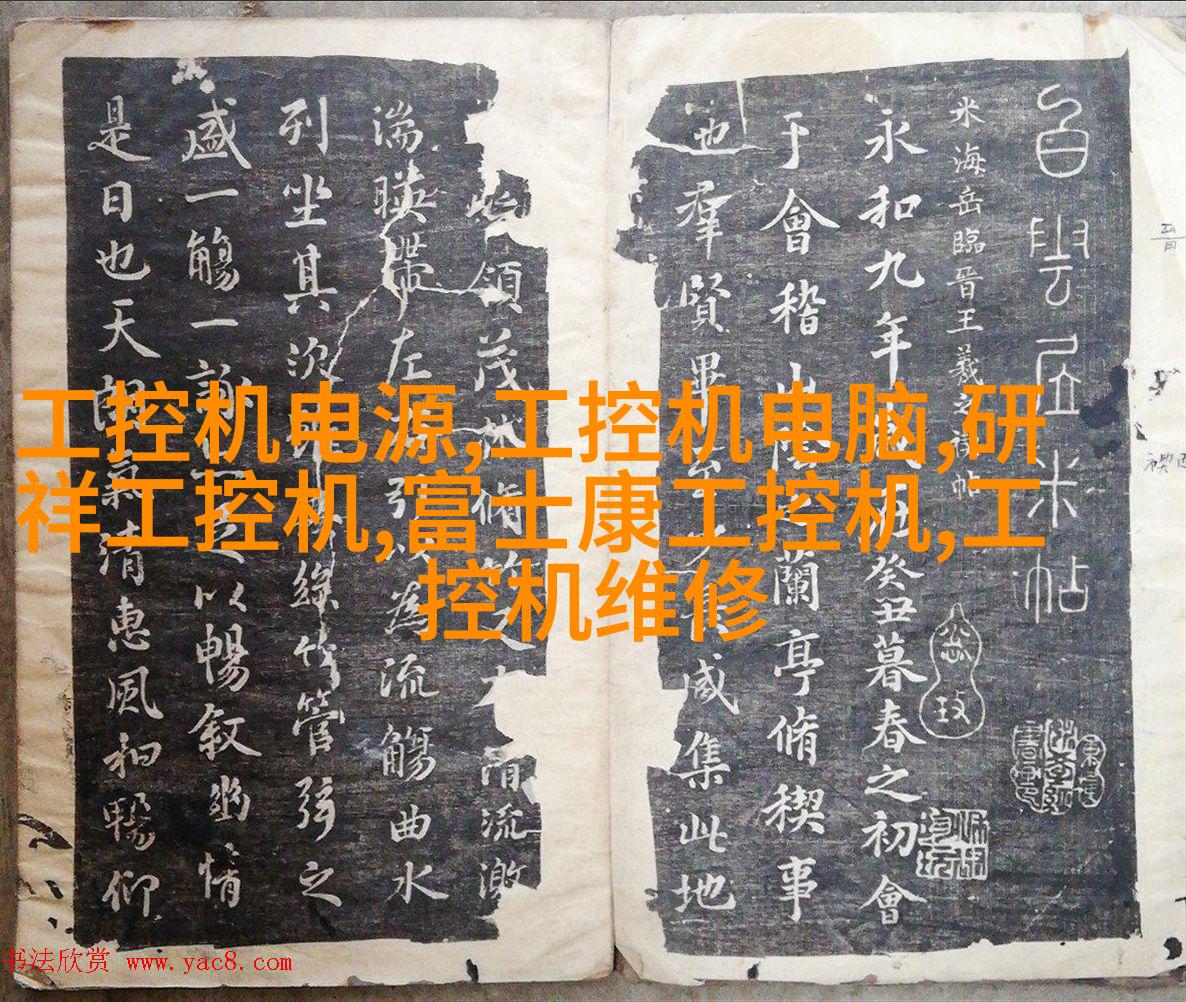 工控机电源,工控机电脑,研
祥工控机,富士康工控机,工
控机维修
白雲居米帖
米海岳臨晉王羲之禊帖
永和九年歲在癸丑暮春之初會
于會稽山陰之蘭亭脩稧事
也羣賢畢至少長咸集此地
領茂林脩竹又有清流激
湍暎帶左右引以為流觴曲水
列坐其次雖無絲竹管弦之
盛一觴一詠亦足以暢敘幽情
是日也天朗氣清惠風和暢仰
书法欣赏 www.yac8.com